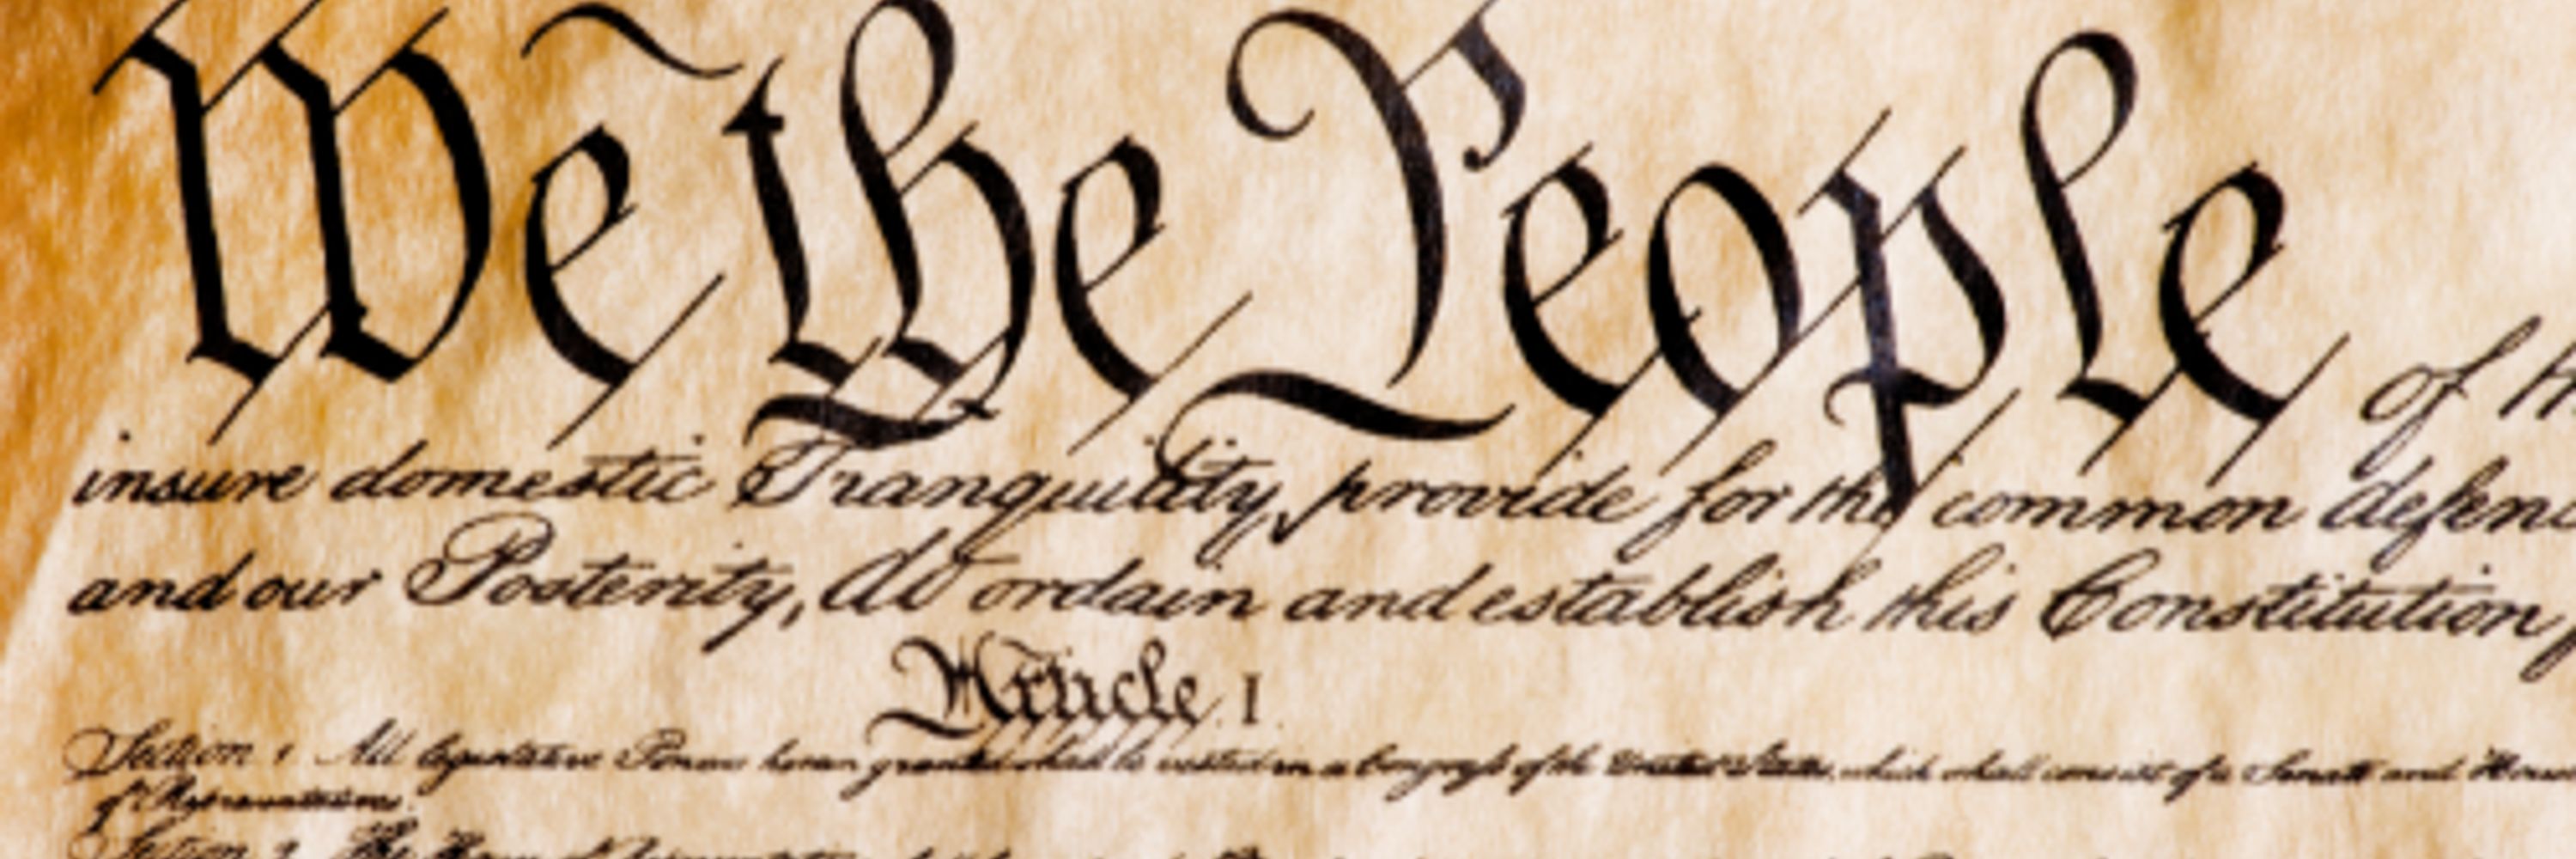 We the People of
insure domestic Tranquility, provide for the common defen
and our Posterity, do ordain and establish this Constitution,
Article. I.
Section. 1. All legislative Powers herein granted shall be vested in a Congress of the United States, which shall consist of a Senate and House
of Representatives.
Section. 2. The House of Representatives